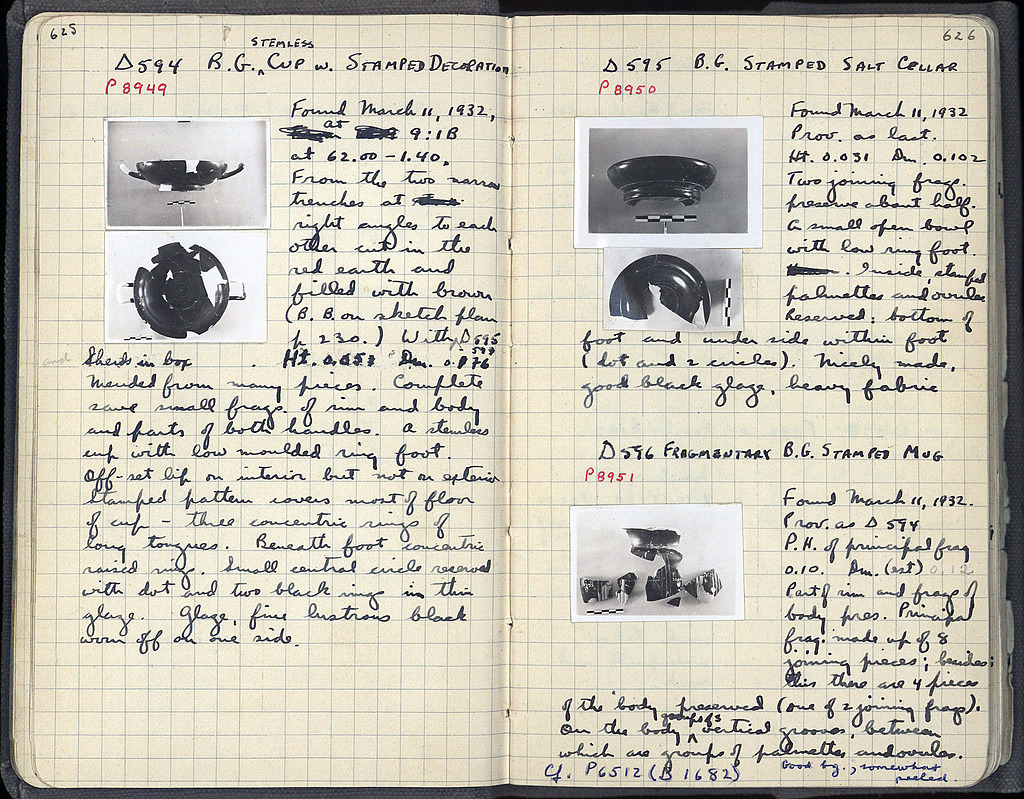 625
STEMLESS
Δ594 B.G. CUP w. STAMPED DECORATION
P 8949
Found March 11, 1932,
at
9:1B
at 62.00 – 1.40.
From the two narrow
trenches at
right angles to each
other cut in the
red earth and
filled with brown
(B. B. on sketch plan
p 230.) With Δ595
596
and Sherds in box . Ht. 0.053 Dm. 0.176
Mended from many pieces. Complete
save small frags. of rim and body
and parts of both handles. A stemless
cup with low moulded ring foot.
Off-set lip on interior but not on exterior
Stamped pattern covers most of floor
of cup – three concentric rings of
long tongues. Beneath foot concentric
raised rings. Small central circle reserved
with dot and two black rings in thin
glaze. Glaze, fine lustrous black
worn off on one side.
626
Δ595 B.G. STAMPED SALT CELLAR
P 8950
Found March 11, 1932
Prov. as last.
Ht. 0.031 Dm. 0.102
Two joining frags.
preserve about half.
A small open bowl
with low ring foot.
. Inside, stamped
palmettes and ovules
Reserved: bottom of
foot and under side within foot
(dot and 2 circles). Nicely made,
good black glaze, heavy fabric
Δ596 FRAGMENTARY B.G. STAMPED MUG
P8951
Found March 11, 1932.
Prov. as Δ 594
P.H. of principal frag
0.10. Dm. (est) 0.12
Part of rim and frags of
body pres. Principal
frag. made up of 8
joining pieces; besides
this there are 4 pieces
of the body preserved (one of 2 joining frags).
groups of 3
On the body vertical grooves, between
which are groups of palmettes and ovules.
Cf. P6512 (B 1682) Good bg., somewhat
peeled.